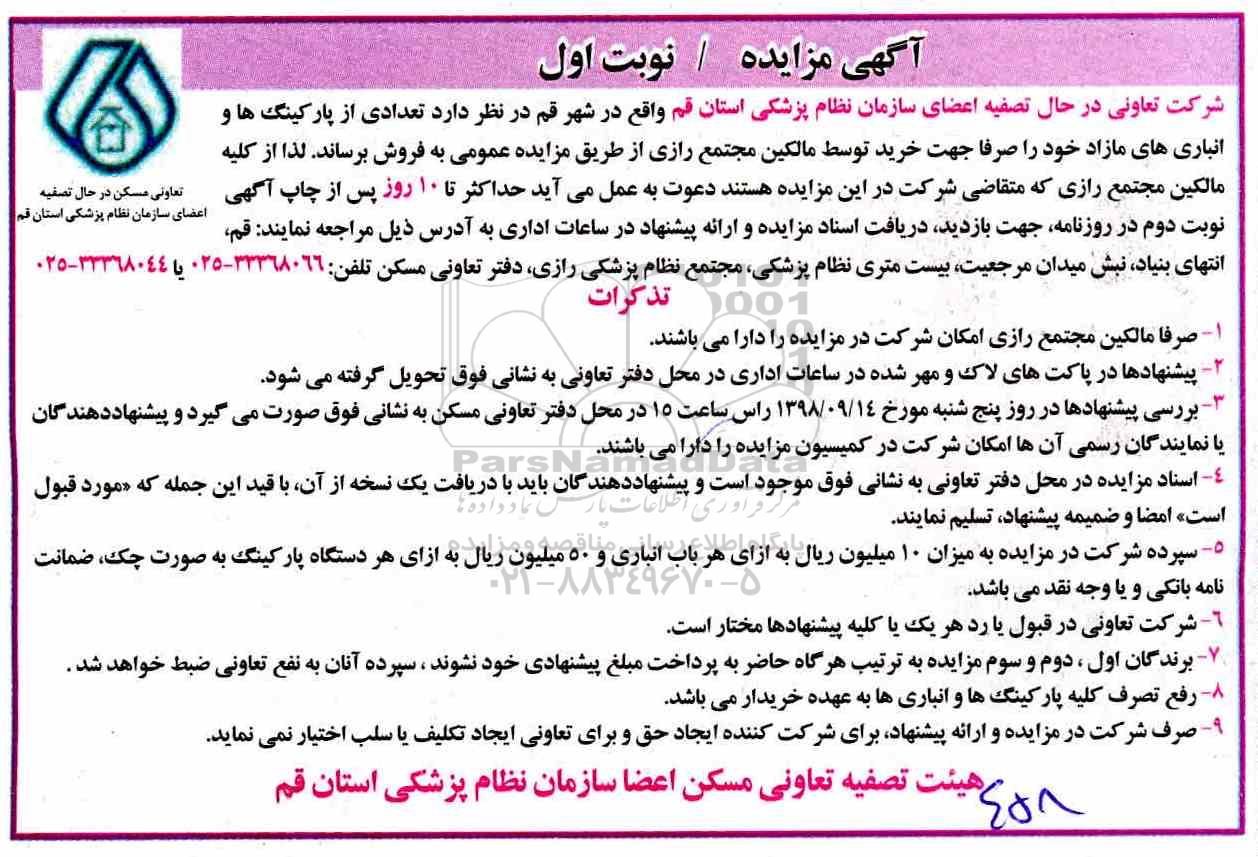 آگهی مزایده / نوبت اول
تعاونی مسکن در حال تصفیه
اعضای سازمان نظام پزشکی استان قم
شرکت تعاونی در حال تصفیه اعضای سازمان نظام پزشکی استان قم واقع در شهر قم در نظر دارد تعدادی از پارکینگ ها و
انباری های مازاد خود را صرفا جهت خرید توسط مالکین مجتمع رازی از طریق مزایده عمومی به فروش برساند. لذا از کلیه
مالکین مجتمع رازی که متقاضی شرکت در این مزایده هستند دعوت به عمل می آید حداکثر تا ۱۰ روز پس از چاپ آگهی
نوبت دوم در روزنامه، جهت بازدید، دریافت اسناد مزایده و ارائه پیشنهاد در ساعات اداری به آدرس ذیل مراجعه نمایند: قم،
انتهای بنیاد، نبش میدان مرجعیت، بیست متری نظام پزشکی، مجتمع نظام پزشکی رازی، دفتر تعاونی مسکن تلفن: ۳۳۳۶۸۰۶۶-۰۲۵ یا ۳۳۳۶۸۰۴۴-۰۲۵
تذکرات
۱- صرفا مالکین مجتمع رازی امکان شرکت در مزایده را دارا می باشند.
۲- پیشنهادها در پاکت های لاک و مهر شده در ساعات اداری در محل دفتر تعاونی به نشانی فوق تحویل گرفته می شود.
۳- بررسی پیشنهادها در روز پنج شنبه مورخ ۱۳۹۸/۰۹/۱۴ راس ساعت ۱۵ در محل دفتر تعاونی مسکن به نشانی فوق صورت می گیرد و پیشنهاددهندگان
یا نمایندگان رسمی آن ها امکان شرکت در کمیسیون مزایده را دارا می باشند.
ParsNamadData
۴- اسناد مزایده در محل دفتر تعاونی به نشانی فوق موجود است و پیشنهاددهندگان باید با دریافت یک نسخه از آن، با قید این جمله که «مورد قبول
مرکز فرآوری اطلاعات پارس نماد داده ها
است» امضا و ضمیمه پیشنهاد، تسلیم نمایند.
پایگاه اطلاع رسانی مناقصه و مزایده
۵- سپرده شرکت در مزایده به میزان ۱۰ میلیون ریال به ازای هر باب انباری و ۵۰ میلیون ریال به ازای هر دستگاه پارکینگ به صورت چک، ضمانت
۰۲۱-۸۸۳۴۹۶۷۰-۵
نامه بانکی و یا وجه نقد می باشد.
۶- شرکت تعاونی در قبول یا رد هر یک یا کلیه پیشنهادها مختار است.
۷- برندگان اول ، دوم و سوم مزایده به ترتیب هر گاه حاضر به پرداخت مبلغ پیشنهادی خود نشوند ، سپرده آنان به نفع تعاونی ضبط خواهد شد .
۸- رفع تصرف کلیه پارکینگ ها و انباری ها به عهده خریدار می باشد.
۹- صرف شرکت در مزایده و ارائه پیشنهاد، برای شرکت کننده ایجاد حق و برای تعاونی ایجاد تکلیف یا سلب اختیار نمی نماید.
هیئت تصفیه تعاونی مسکن اعضا سازمان نظام پزشکی استان قم